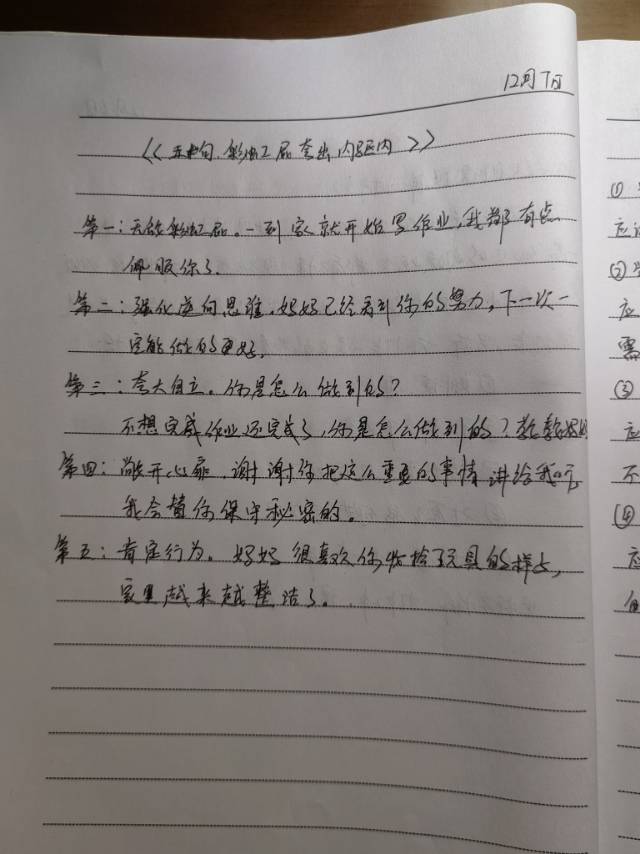 12月7日
《五句彩虹屁夸出内驱力》
第一:无敌彩虹屁。一到家就开始写作业,我都有点
佩服你了.
第二:强化逆向思维.妈妈已经看到你的努力,下一次一
定能做的更好.
第三:夸大自立。你是怎么做到的?
不想完成作业还完成了,你是怎么做到的?教教妈妈
第四:敞开心扉.谢谢你把这么重要的事情讲给我听
我会替你保守秘密的。
第五:肯定行为。妈妈很喜欢你收拾玩具的样子,
家里越来越整洁了。
①
应
②
应
需
③
应
不
④
应